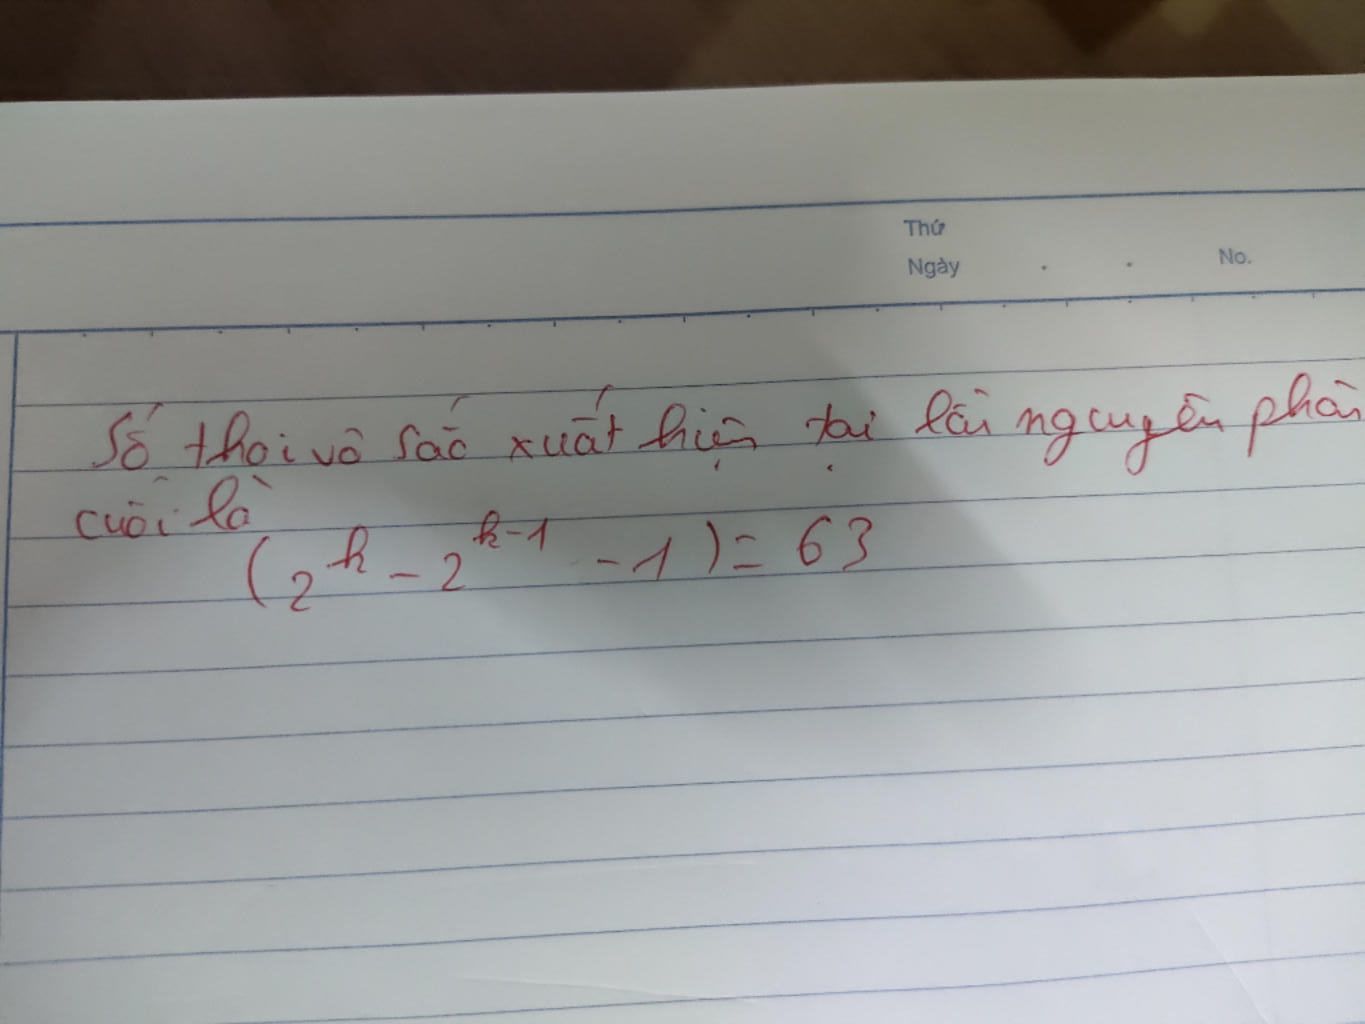 Thứ
Ngày . . No.
Số thoi vô sắc xuất hiện tại lần nguyên phân
cuối là
(2^k - 2^{k-1} - 1) = 63